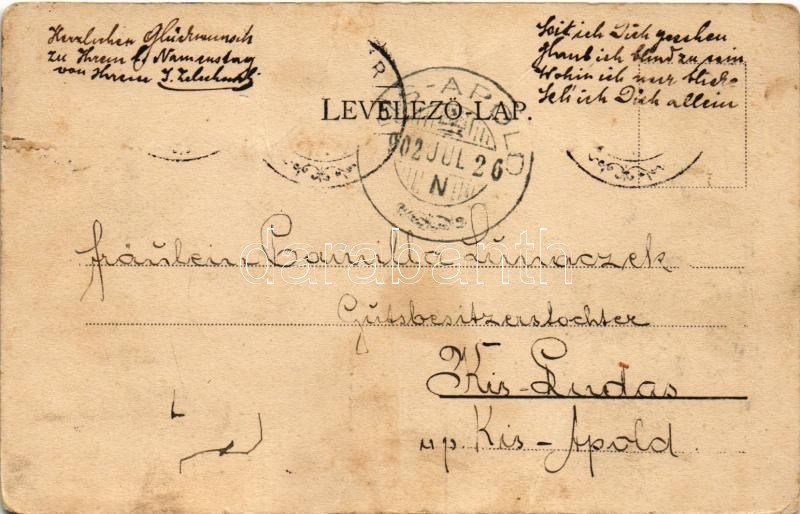 Herzlichen Glückwunsch
zu Ihrem Namenstag
von Ihrem
Seit ich Dich gesehen
Glaub ich blind zu sein
Wohin ich nur blicke
Seh ich Dich allein
LEVELEZŐ-LAP.
KIS-APOLD
902 JUL 26
N
darabanth
fräulein Camilla
Gutsbesitzerstochter
Kis-Ludas
up. Kis-Apold